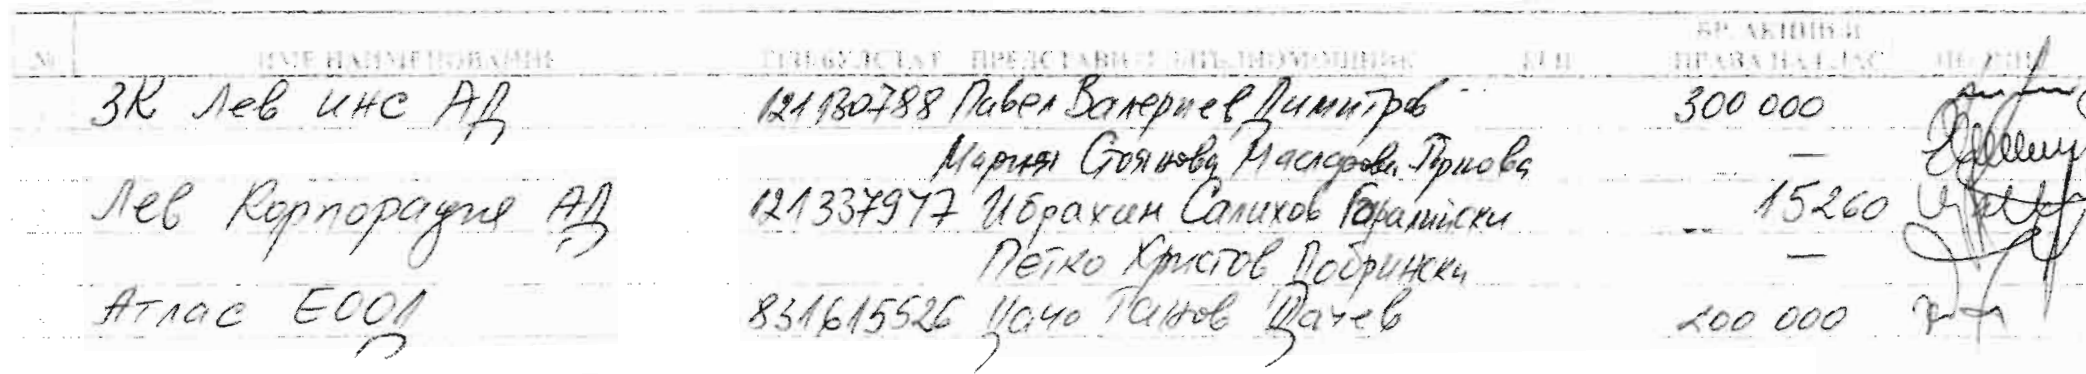 БР. АКЦИИ И
№ ИМЕ НАИМЕНОВАНИЕ ЕГН БУЛСТАТ ПРЕДСТАВИТЕЛ ПЪЛНОМОЩНИК ЕГН ПРАВА НА ГЛАС ПОДПИС
ЗК Лев инс АД 121130788 Павел Валериев Димитров 300 000
Мария Стоянова Масларова —
Лев Корпорация АД 121337947 Ибрахим Салихов 15260
Петко Христов Добрински —
Атлас ЕООД 831615526 Цачо Цачев 200 000